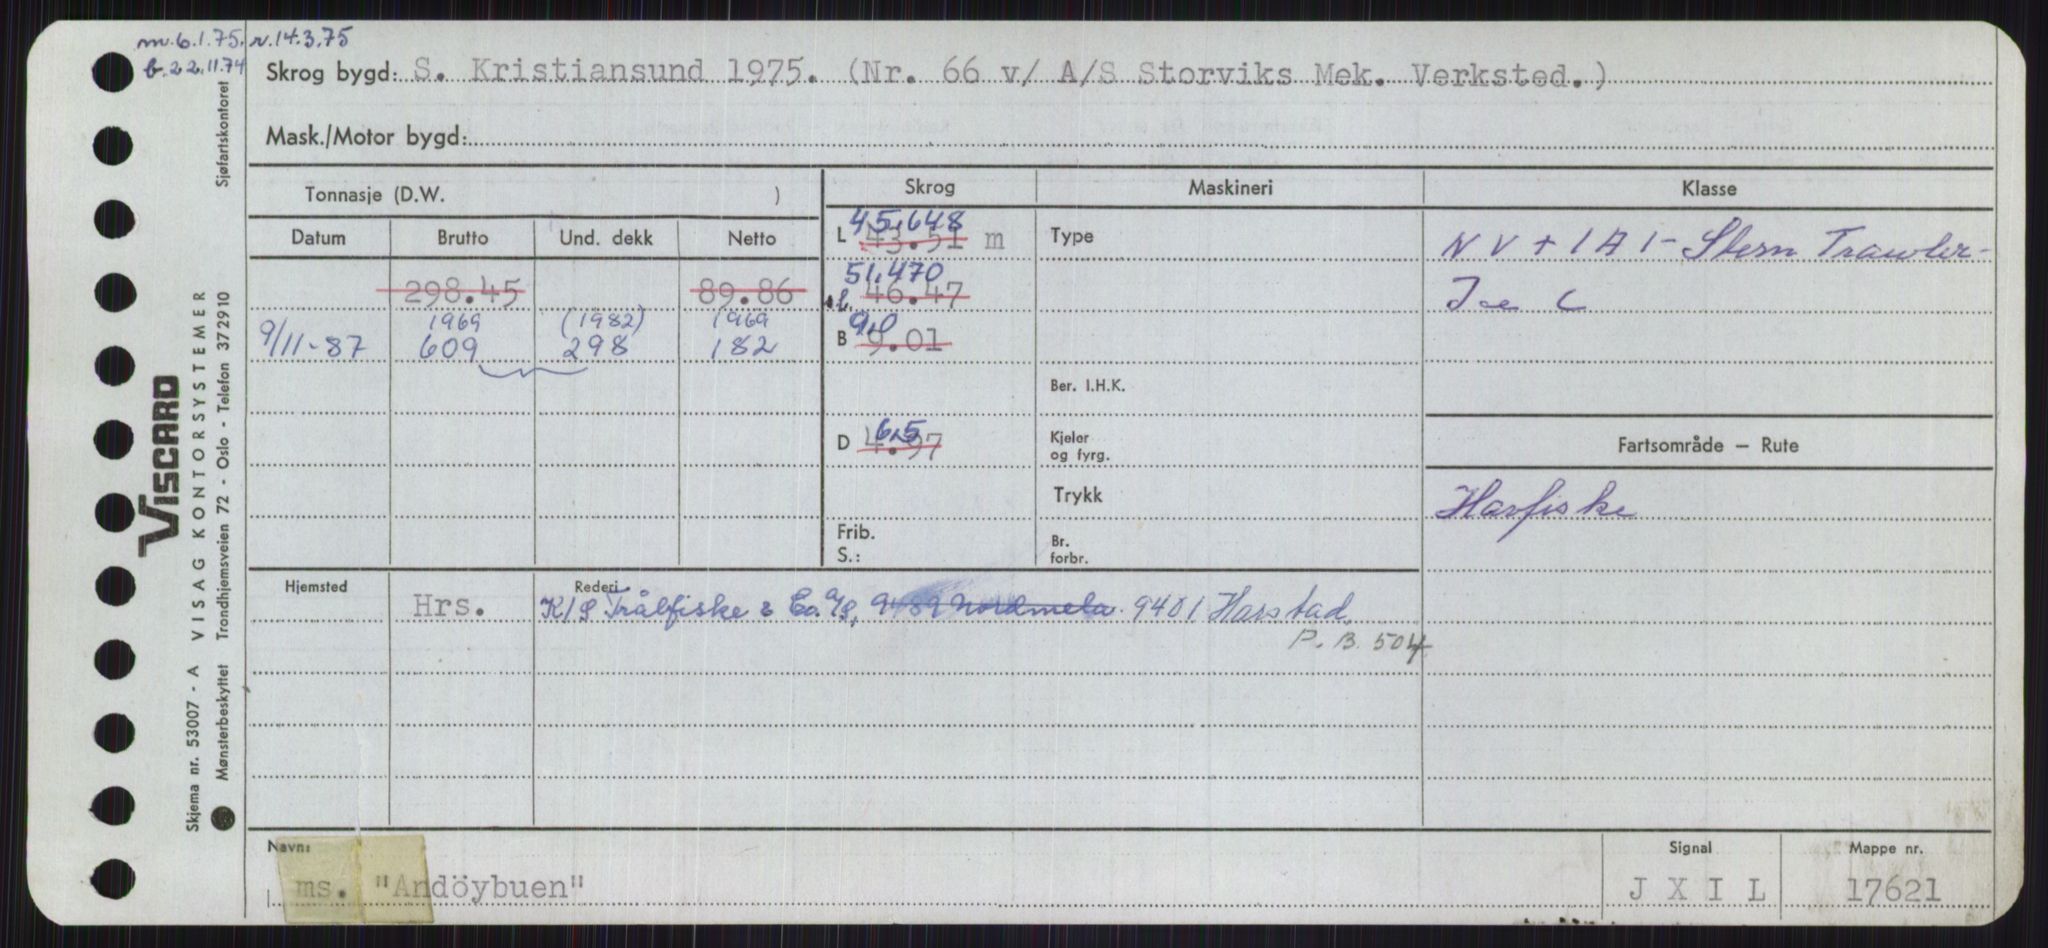 m.6.1.75. r.14.3.75
b.22.11.74
Skrog bygd: S. Kristiansund 1975. (Nr. 66 v/ A/S Storviks Mek. Verksted.)
Mask./Motor bygd:
Tonnasje (D.W. )
Skrog
Maskineri
Klasse
Datum
Brutto
Und. dekk
Netto
L 45,648
43.51 m
Type
N V + 1 A 1 - Stern Trawler -
298.45
89.86
51,470
l. 46.47
Ice C
1969
(1982)
1969
9/11-87
609
298
182
B 9,0
9.01
Ber. I.H.K.
D 6,5
4.97
Kjeler
og fyrg.
Fartsområde — Rute
Trykk
Havfiske
Frib.
S.:
Br.
forbr.
Hjemsted
Rederi
Hrs.
K/S Trålfiske & Co. A/S, 9489 Nordmela. 9401 Harstad.
P.B. 504
Navn:
ms. "Andöybuen"
Signal
J X I L
Mappe nr.
17621
Sjøfartskontoret
VISCARD
VISAG KONTORSYSTEMER
Trondhjemsveien 72 - Oslo - Telefon 372910
Skjema nr. 53007 - A
Mønsterbeskyttet